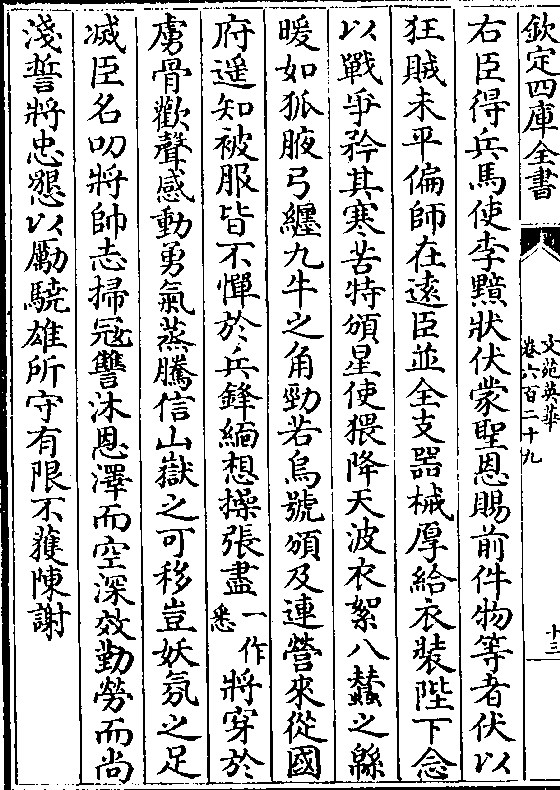 欽定四庫全書
文苑英華
卷六百二十九
十三
右臣得兵馬使李黯狀伏蒙聖恩賜前件物等者伏以
狂賊未平偏師在遠臣並全支器械厚給衣裝陛下念
以戰爭矜其寒苦特頒星使猥降天波衣絮八蠶之緜
暖如狐腋弓纏九牛之角勁若烏號頒及連營來從國
府遥知被服皆不憚於兵鋒緬想操張盡一作悉將穿於
虜骨歡聲感動勇氣蒸騰信山嶽之可移豈妖氛之足
滅臣名叨將帥志掃冦讐沐恩澤而空深效勤勞而尚
淺誓將忠懇以勵驍雄所守有限不獲陳謝